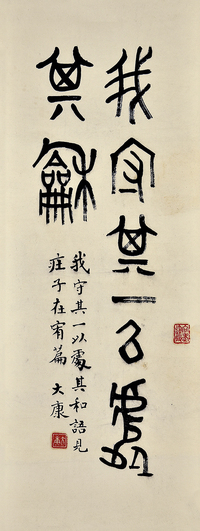 我守其一㠯處
其龢
我守其一以處其和語見
莊子在宥篇 大康